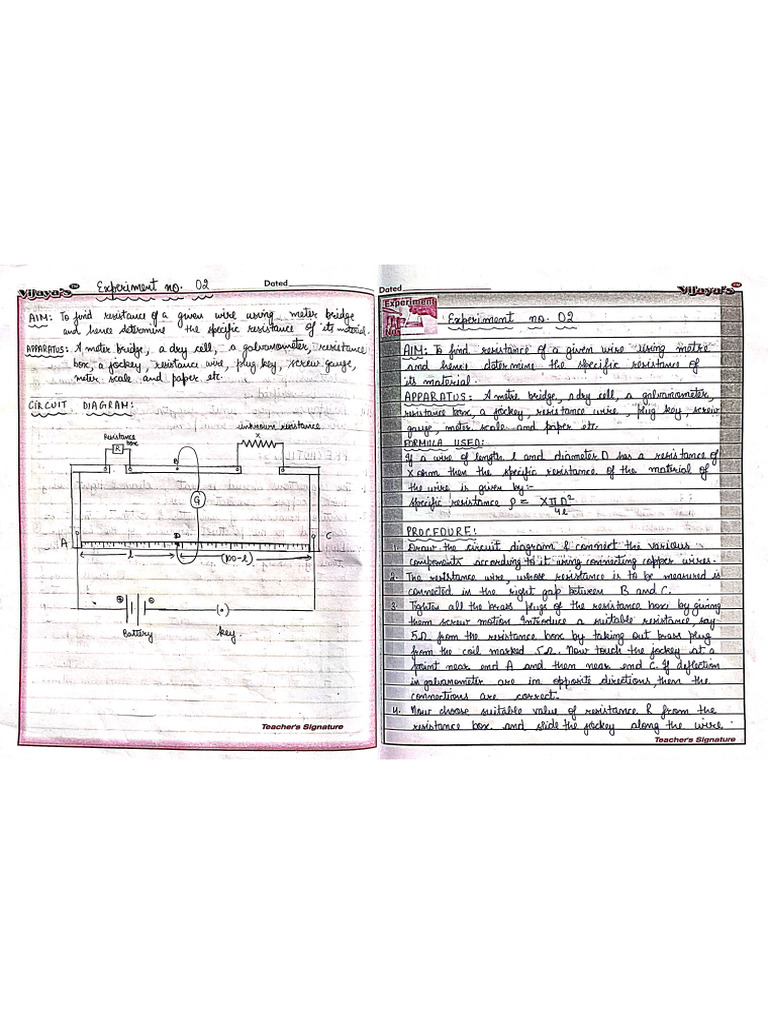 Vijaya's™ Experiment no. 02 Dated
AIM: To find resistance of a given wire using meter bridge
and hence determine the specific resistance of its material.
APPARATUS: A meter bridge, a dry cell, a galvanometer, resistance
box, a jockey, resistance wire, plug key, screw gauge,
meter scale and paper etc.
CIRCUIT DIAGRAM:
unknown resistance
X
Resistance
box
R
B
G
A
D
C
l
(100-l)
Battery
key.
Teacher's Signature
Dated Vijaya's™
Experiment
No.
Experiment no. 02
AIM: To find resistance of a given wire using metre
and hence determine the specific resistance of
its material.
APPARATUS: A metre bridge, a dry cell, a galvanometer,
resistance box, a jockey, resistance wire, plug key, screw
gauge, meter scale and paper etc.
FORMULA USED:
If a wire of length l and diameter D has a resistance of
X ohm then the specific resistance of the material of
the wire is given by:-
specific resistance ρ = XπD²
4l
PROCEDURE:
1. Draw the circuit diagram & connect the various
components according to it using connecting copper wires.
2. The resistance wire, whose resistance is to be measured is
connected in the right gap between B and C.
3. Tighten all the brass plugs of the resistance box by giving
them screw motion. Introduce a suitable resistance, say
5Ω from the resistance box by taking out brass plug
from the coil marked 5Ω. Now touch the jockey at a
point near end A and then near end C. If deflection
in galvanometer are in opposite directions, then the
connections are correct.
4. Now choose suitable value of resistance R from the
resistance box and slide the jockey along the wire
Teacher's Signature